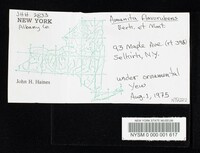 JHH 2633
NEW YORK
Albany Co.
John H. Haines
Amanita flavorubens
Berk. et Mont.
93 Maple Ave.
Selkirk, N.Y.
under ornamental
Yew
Aug 1, 1975
NEW YORK STATE MUSEUM
N 0 000 001 617